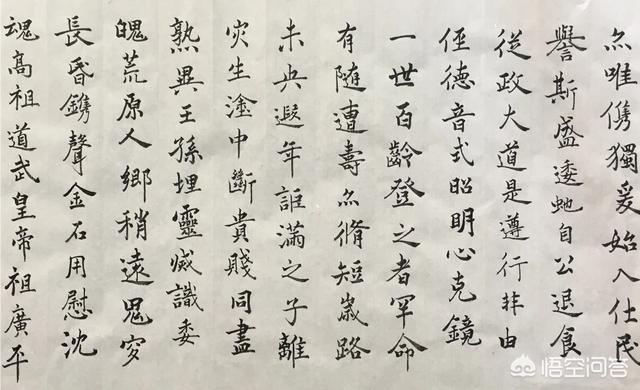 亦唯儁獨爰始入仕民
譽斯盛逶虵自公退食
從政大道是遵行非由
俓德音式昭明心克鏡
一世百齡登之者罕命
有隨遭壽亦脩短歲路
未央遐年詎滿之子離
灾生塗中斷貴賤同盡
熟異王孫埋靈滅識委
魄荒原人鄉稍遠鬼穸
長昏鐫聲金石用慰沈
魂高祖道武皇帝祖廣平
悟空问答